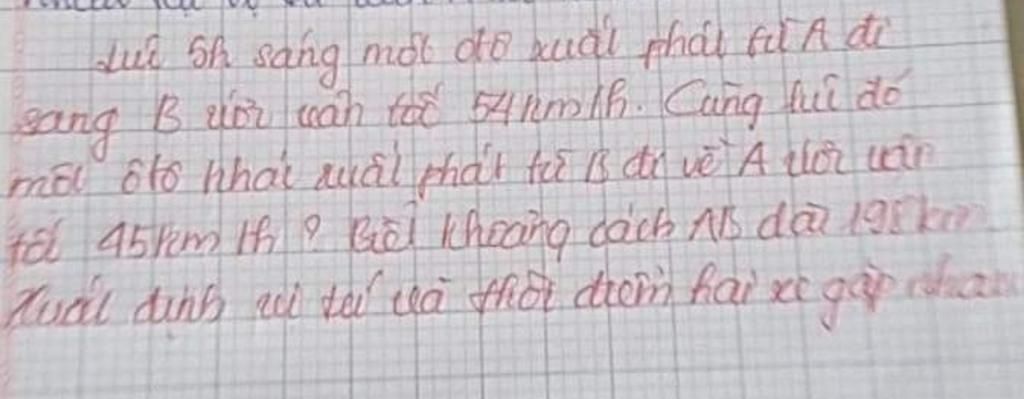 Lúc 5h sáng một ôtô xuất phát từ A đi
sang B với vận tốc 54km/h. Cùng lúc đó
một ôtô khác xuất phát từ B đi về A với vận
tốc 45km/h ? Biết khoảng cách AB dài 198km
Xuất định vị trí và thời điểm hai xe gặp nhau